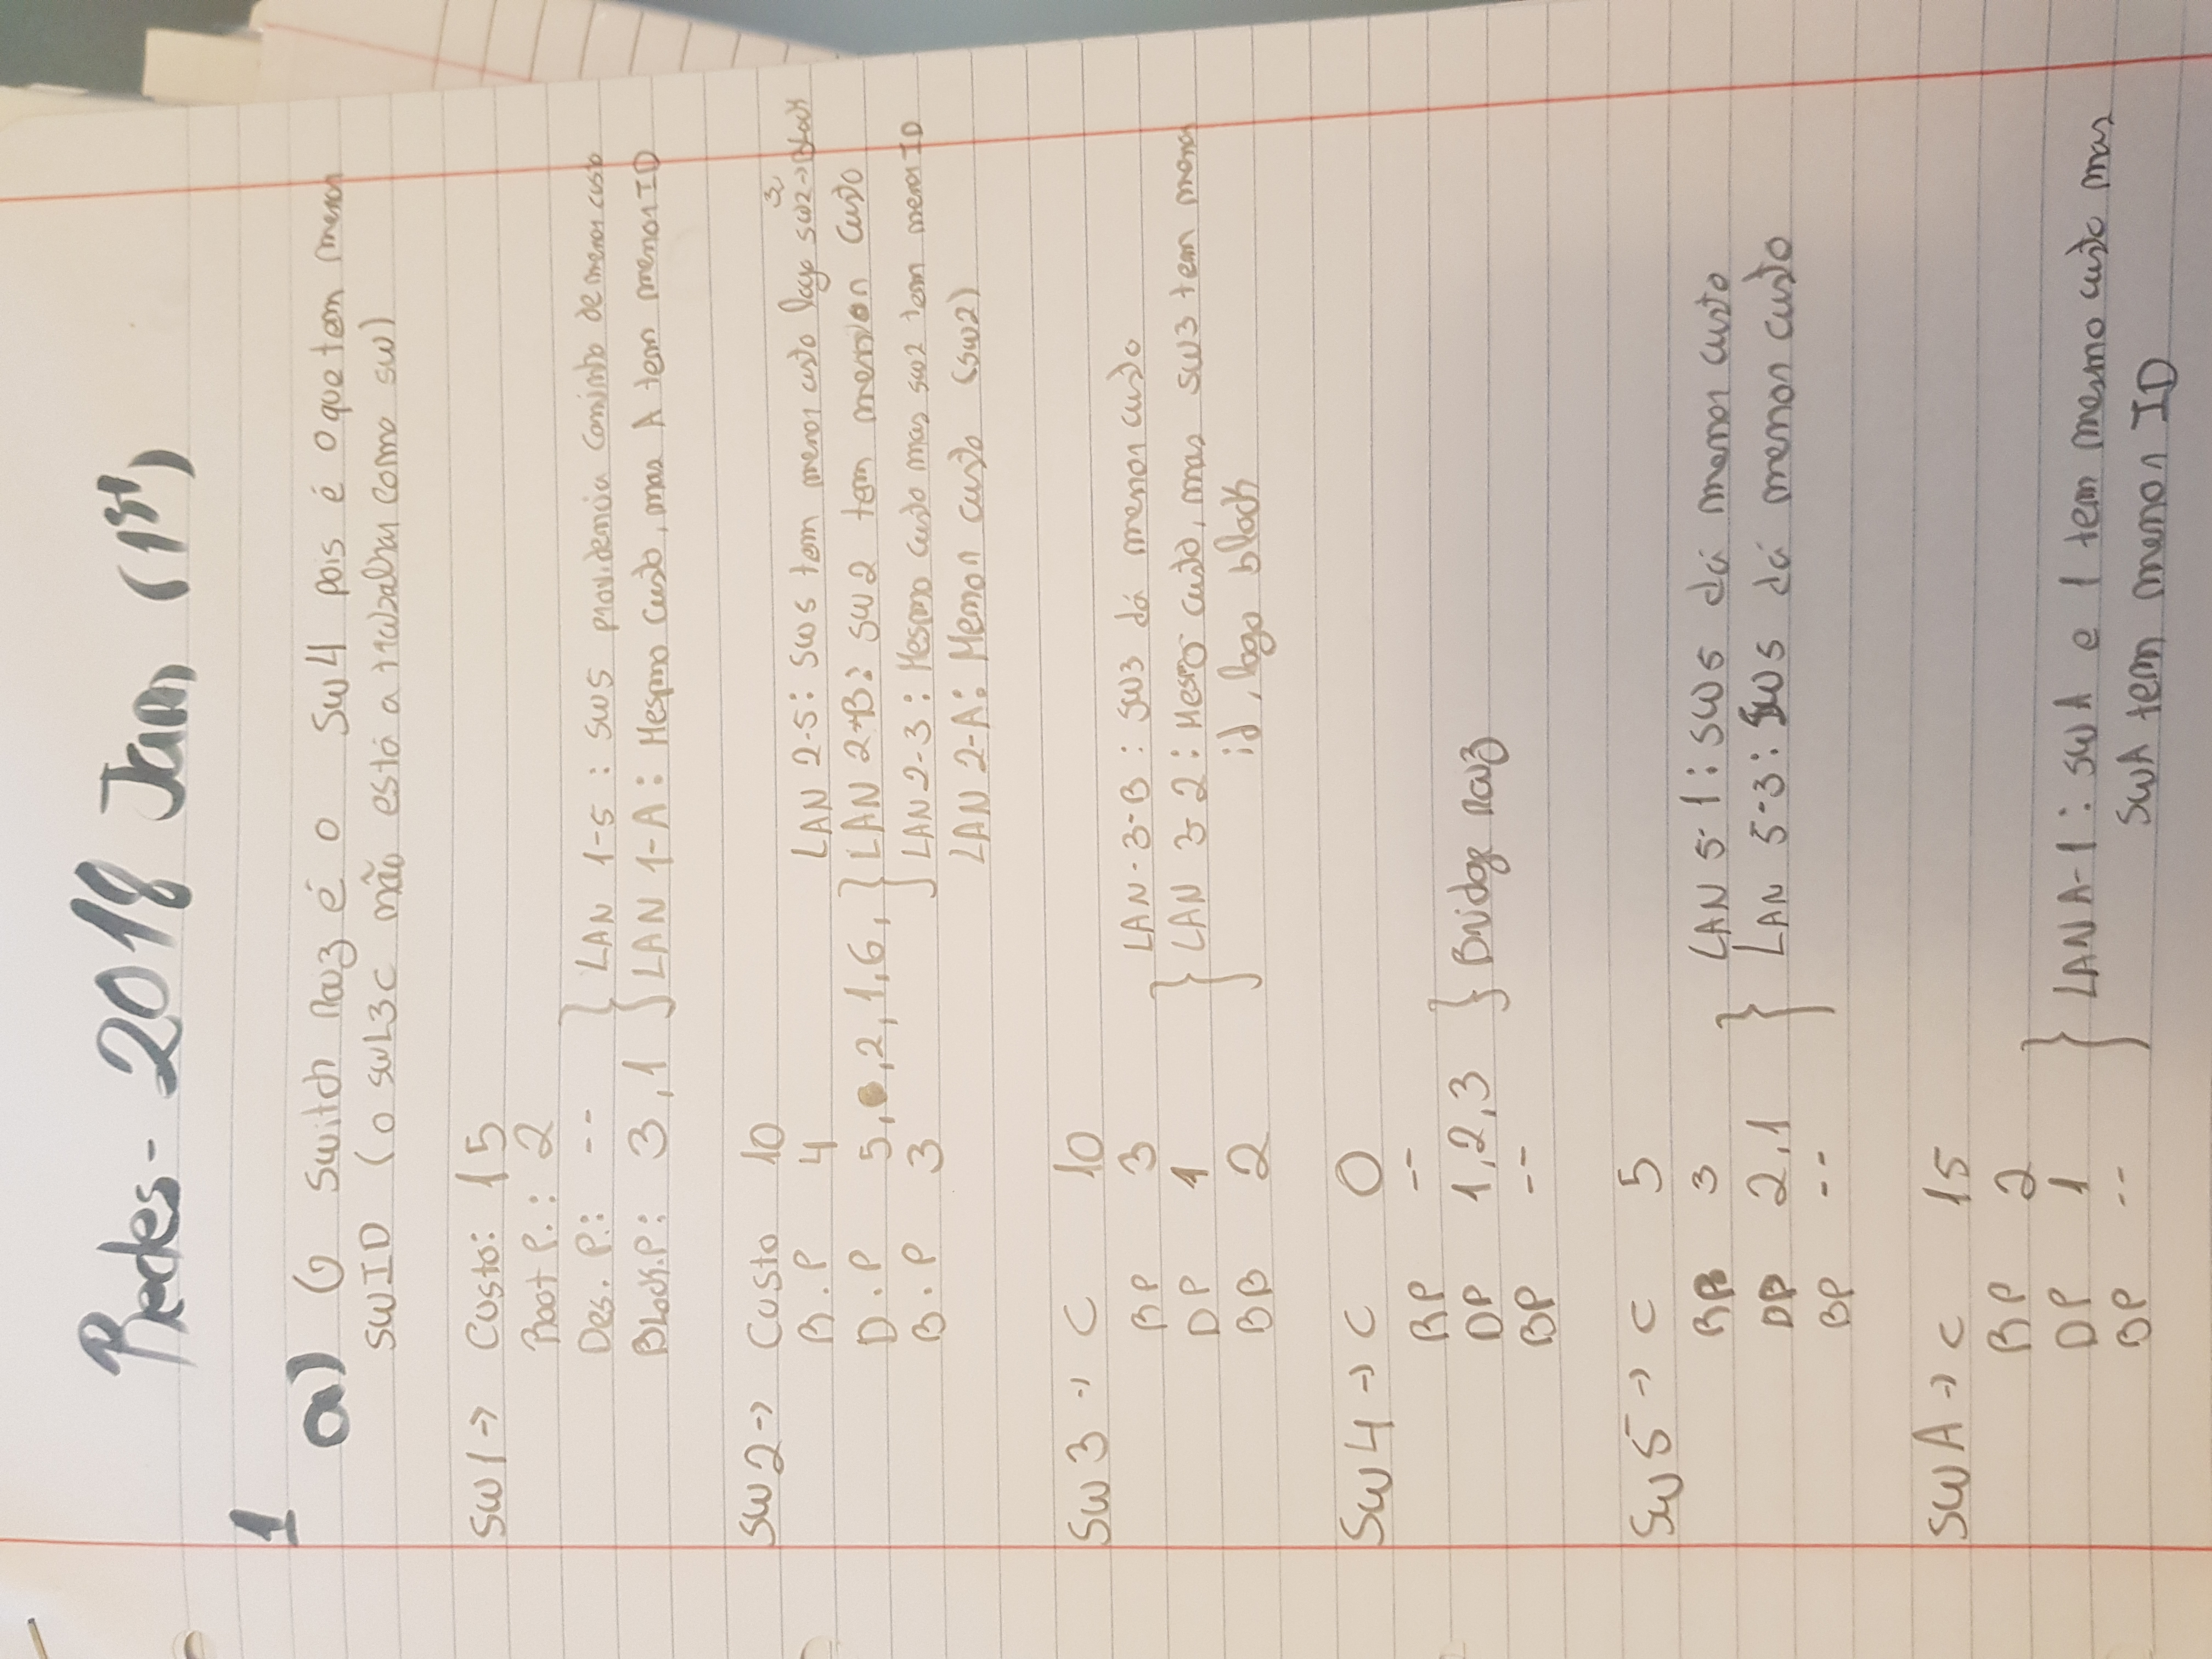 Redes - 2018 Jan (1st)
1
a) O switch raiz é o SW4 pois é o que tem menor
SWID (o SWL3C não está a trabalhar como SW)
SW1 -> Custo: 15
Root P.: 2
Des. P.: -- LAN 1-5: SW5 providencia caminho de menor custo
Block.P: 3,1 LAN 1-A: Mesmo custo, mas A tem menor ID
SW2 -> Custo 10
R.P 4 LAN 2-5: SW5 tem menor custo logo SW2->Block
3
D.P 5, 2, 1, 6, LAN 2-B: SW2 tem menor custo
B.P 3 LAN 2-3: Mesmo custo mas SW2 tem menor ID
LAN 2-A: Menor custo (SW2)
SW3 -> C 10
RP 3 LAN-3-B: SW3 dá menor custo
DP 1 LAN 3-2: Mesmo custo, mas SW3 tem menor
BB 2 id, logo block
SW4 -> C 0
RP --
DP 1,2,3 Bridge raiz
BP --
SW5 -> C 5
RP 3 LAN 5-1: SW5 dá menor custo
DP 2,1 LAN 5-3: SW5 dá menor custo
BP --
SWA -> C 15
RP 2
DP 1 LAN A-1: SWA e 1 tem mesmo custo mas
BP -- SWA tem menor ID